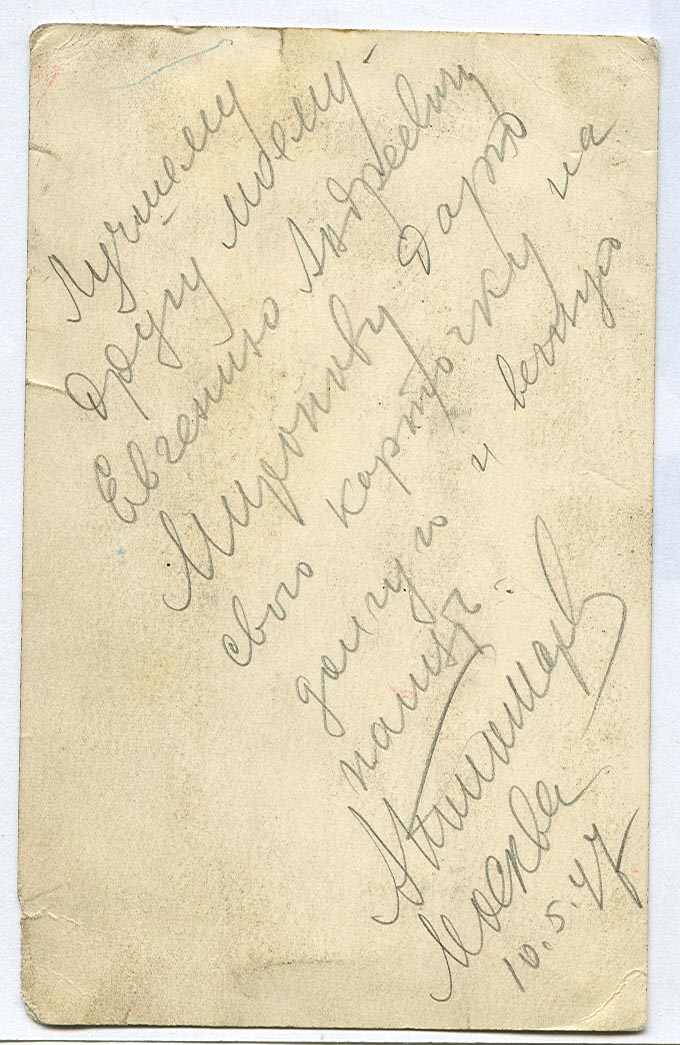 Лучшему
другу моему
Евгению Андреевичу
Миронову дарю
свою карточку на
долгую и вечную
память.
Москва
10.5.47